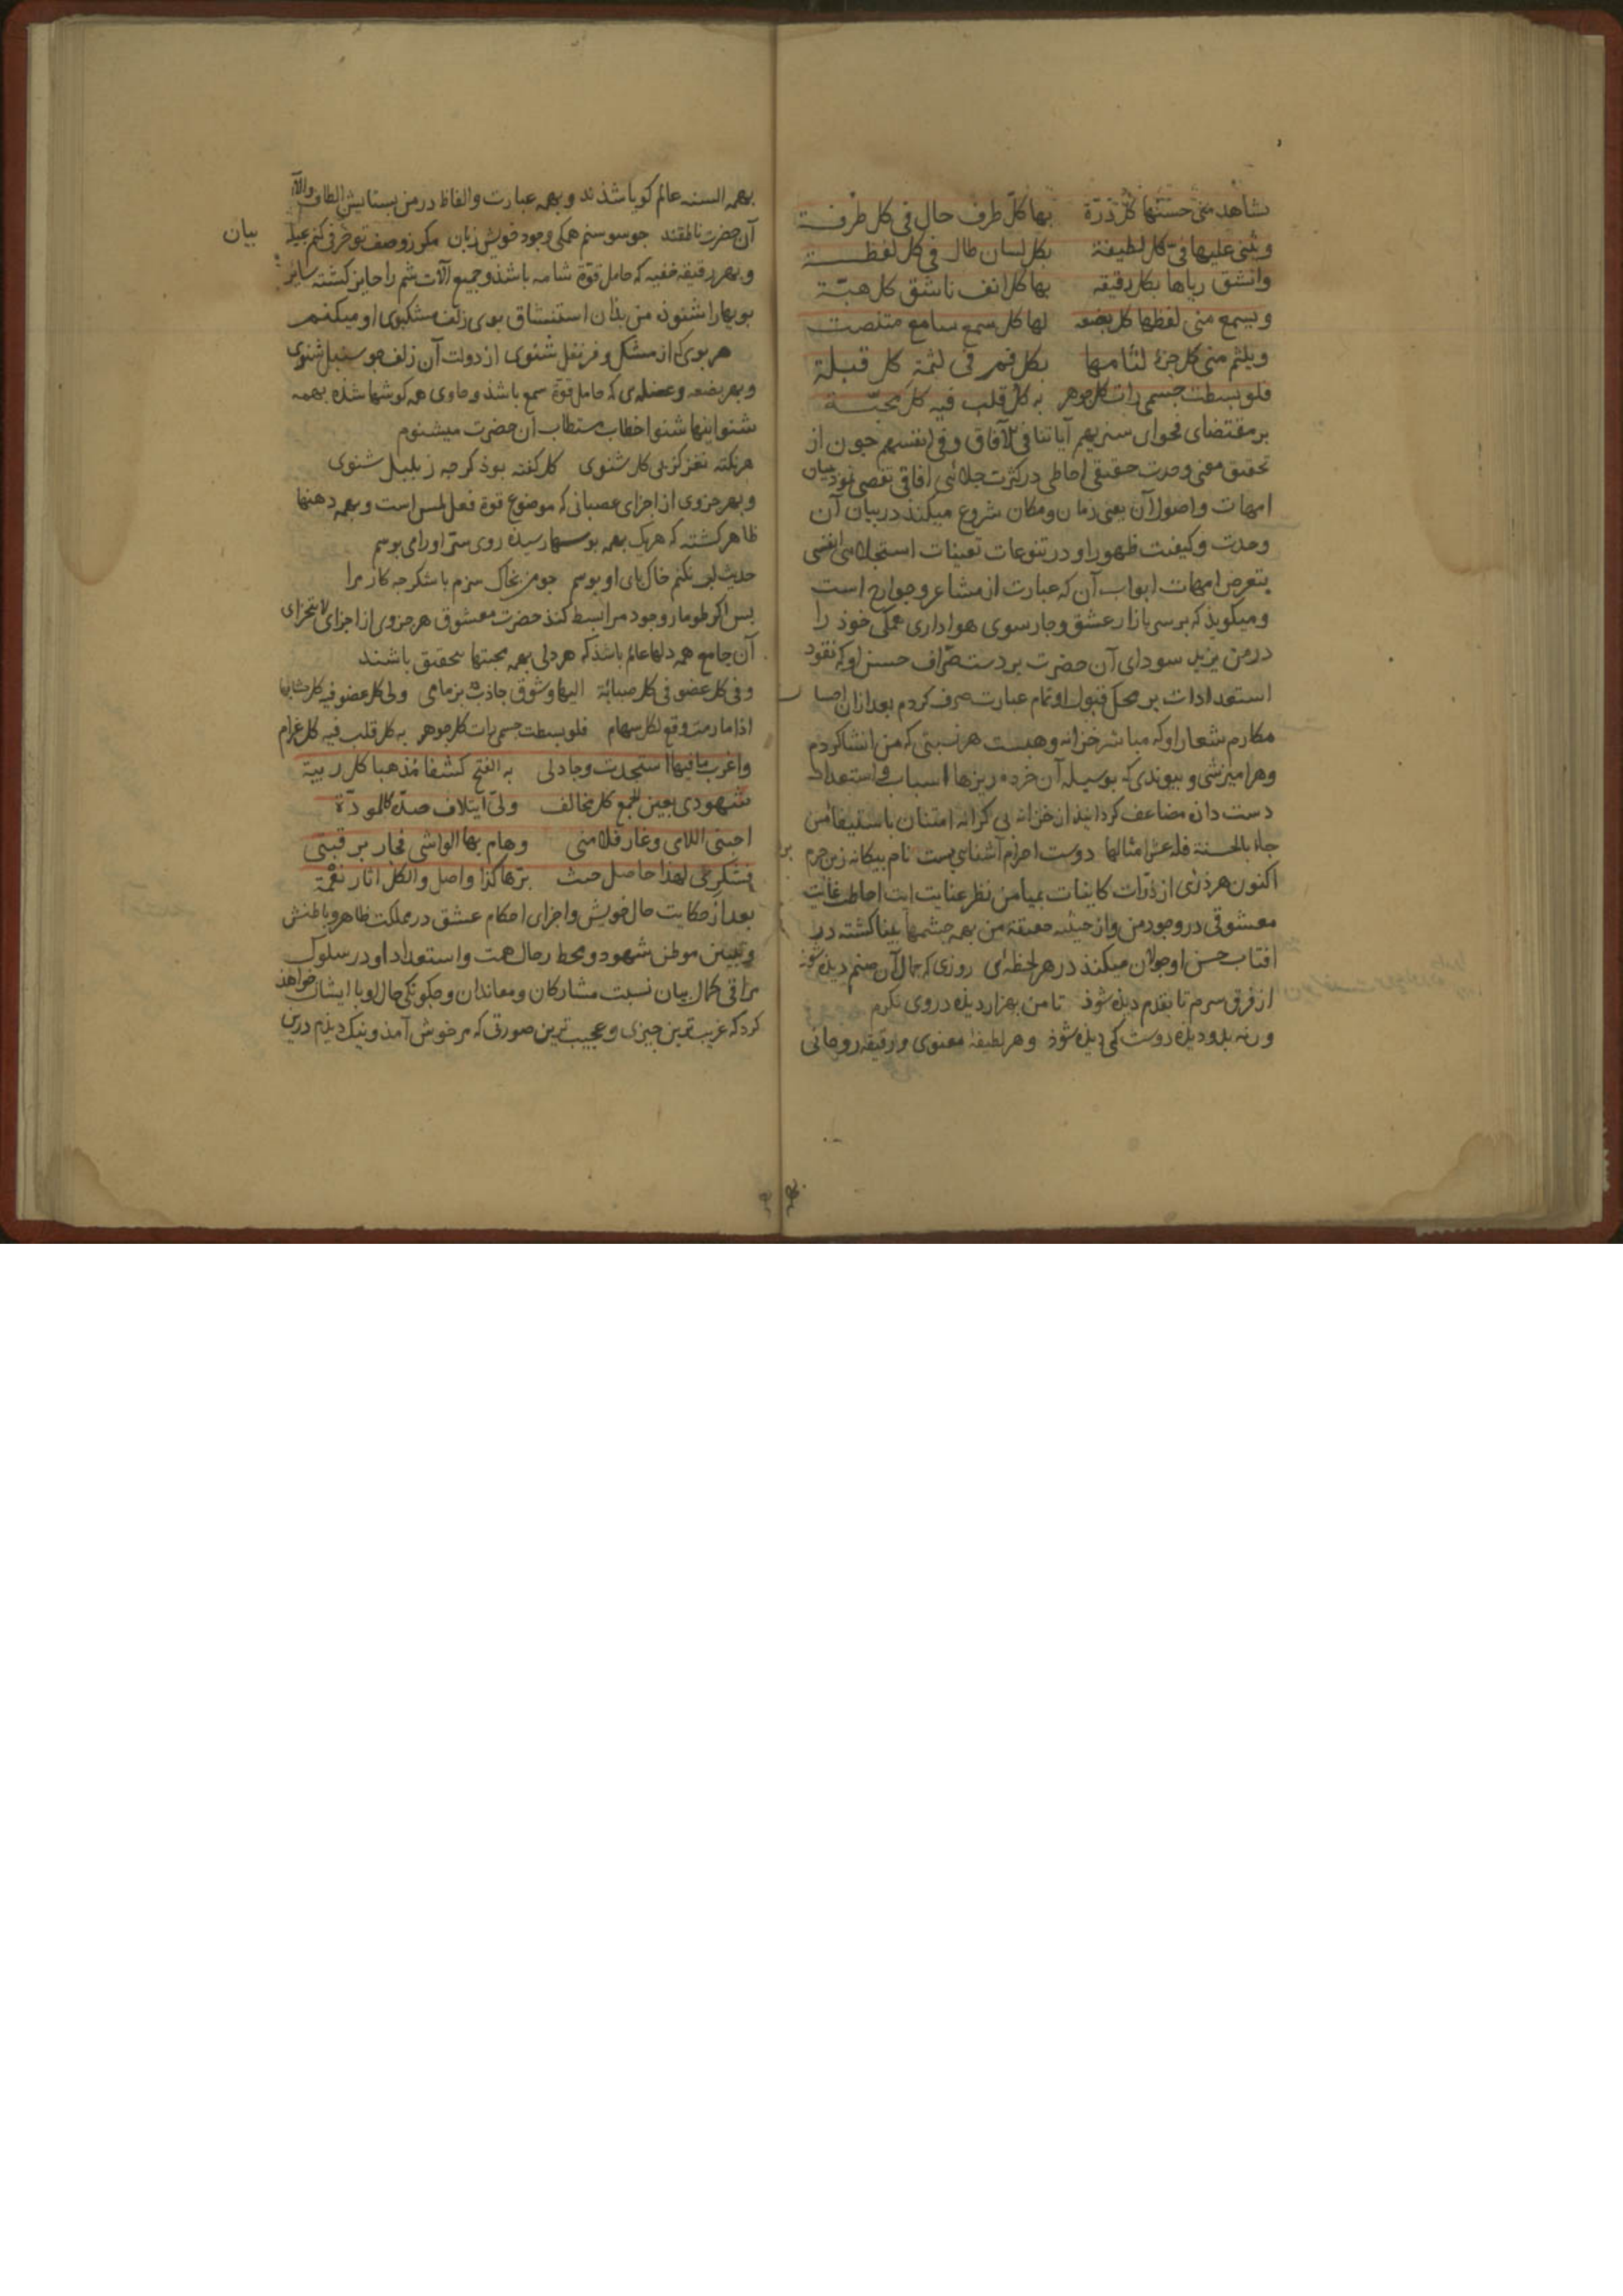 یشاهد منی حسنها کل ذرة بها کل طرف جال فی کل طرفة
ویثنی علیها فی کل لطیفة بکل لسان طال فی کل لفظة
وانشق ریاها بکل رقیقه بها کل انف ناشق کل هبّة
ویسمع منی لفظها کل بضعه لها کل سمع سامع متنصت
ویلثم منی کل جزء لثامها بکل فم فی لثمة کل قبلة
فلو بسطت جسمی رات کل جوهر به کل قلب فیه کل محبّة
بر مقتضای فحوای سنریهم آیاتنا فی الآفاق وفی انفسهم چون از
تحقیق معنی وحدت حقیقی احاطی در کثرت جلائی افاقی تفصی نمود بیان
امهات واصول آن یعنی زمان ومکان شروع میکند در بیان آن
وحدت وکیفیت ظهور او در تنوعات تعینات استجلائی انفسی
بتعرض امهات ابواب آن که عبارت از مشاعر وجوارح است
ومیکوید که بر سر بازار عشق وچارسوی هواداری همکی خود را
در من یزید سودای آن حضرت بر دست صرّاف حسن او که نقود
استعدادات بر محک قبول او تمام عیارست صرف کردم بعد ازان
مکارم شعار او که مباشر خزانه وهبست هر نسبتی که من انشا کردم
وهر امیزشی وپیوندی که بوسیله آن خرده ریزها اسباب واستعداد
دست داده مضاعف کردانید از خزانه بی کرانه امتنان باستیفا من
جاء بالحسنة فله عشر امثالها دوست احرام آشنایی بست نام بیکانه زین حرم
اکنون هر ذره‌ی از ذرّات کاینات بمیامن نظر عنایت ایت احاطت غایت
معشوقی در وجود من واز حیثیه حقیقة من بهمه چشمها بینا کشته در
افتاب حسن او جولان میکند در هر لحظه‌ای روزی که جمال آن صنم دیده شود
از فرق سرم تا بقدم دیده شود تا من بهزار دیده در وی نکرم
ورنه بدو دیده دوست کی دیده شود وهر لطیفهٔ معنوی ورقیقه روحانی
بهمه السنه عالم کویا شدند وبهمه عبارت والفاظ در من بستایش الطاف والآء
آن حضرت ناطقند چو سوسنم همکی وجود خویش زبان مکر ز وصف تو حرفی کنم بیان
وبهر رقیقه خفیه که حامل قوّة شامه باشد وجمیع آلات شم را حایز کشته سایر
بویها را شنود من بذان استنشاق بوی زلف مشکبوی او میکنم
هر بوی که از مشک وقرنفل شنوی از دولت آن زلف چو سنبل شنوی
وبهر بضعه وعضله‌ی که حامل قوّة سمع باشد وحاوی همه کوشها شده بهمه
شنواییها شنوا خطاب مستطاب ان حضرت میشنوم
هر نکته نغز کز پی کل شنوی کل کفته بود کرچه ز بلبل شنوی
وبهر جزوی از اجزای عصبانی که موضوع قوة فعل لمس است وبهمه دهنها
ظاهر کشته که هر یک بهمه بوسها رسیده روی ستر او را می بوسم
حدیث لب نکنم خاک پای او بوسم چو من بخاک سزم با شکر چه کار مرا
پس اکر طومار وجود مرا بسط کند حضرت معشوق هر جزوی از اجزای لا تتجزای
آن جامع همه دلهاء عالم باشد که هر دلی بهمه محبتها متحقق باشند
وفی کل عضو فی کل صبابة الیها وشوق جاذب بزمامی ولی کل عضو فیه کل حشا بها
اذا ما رمت وقع لکل سهام فلو بسطت جسمی رات کل جوهر به کل قلب فیه کل غرام
واغرب ما فیها استجدت وجاد لی به الفتح کشفا مذهبا کل ریبة
شهودی بعین الجمع کل مخالف ولیّ ایتلاف صدّه کالمودّة
احبنی اللاحی وغار فلامنی وهام بها الواشی فجار برقبتی
فشکری لهذا حاصل حیث برّها لذا واصل والکل آثار نعمة
بعد از حکایت حال خویش واجرای احکام عشق در مملکت ظاهر وباطنش
وتبیین موطن شهود ومحط رحال همت واستعداد او در سلوک
مراقی کمال بیان نسبت مشارکان ومعاندان وچکونکی حال او با ایشان خواهد
کرد که غریب ترین چیزی وعجیب ترین صورتی که مر خوش آمد ونیک دیدم درین